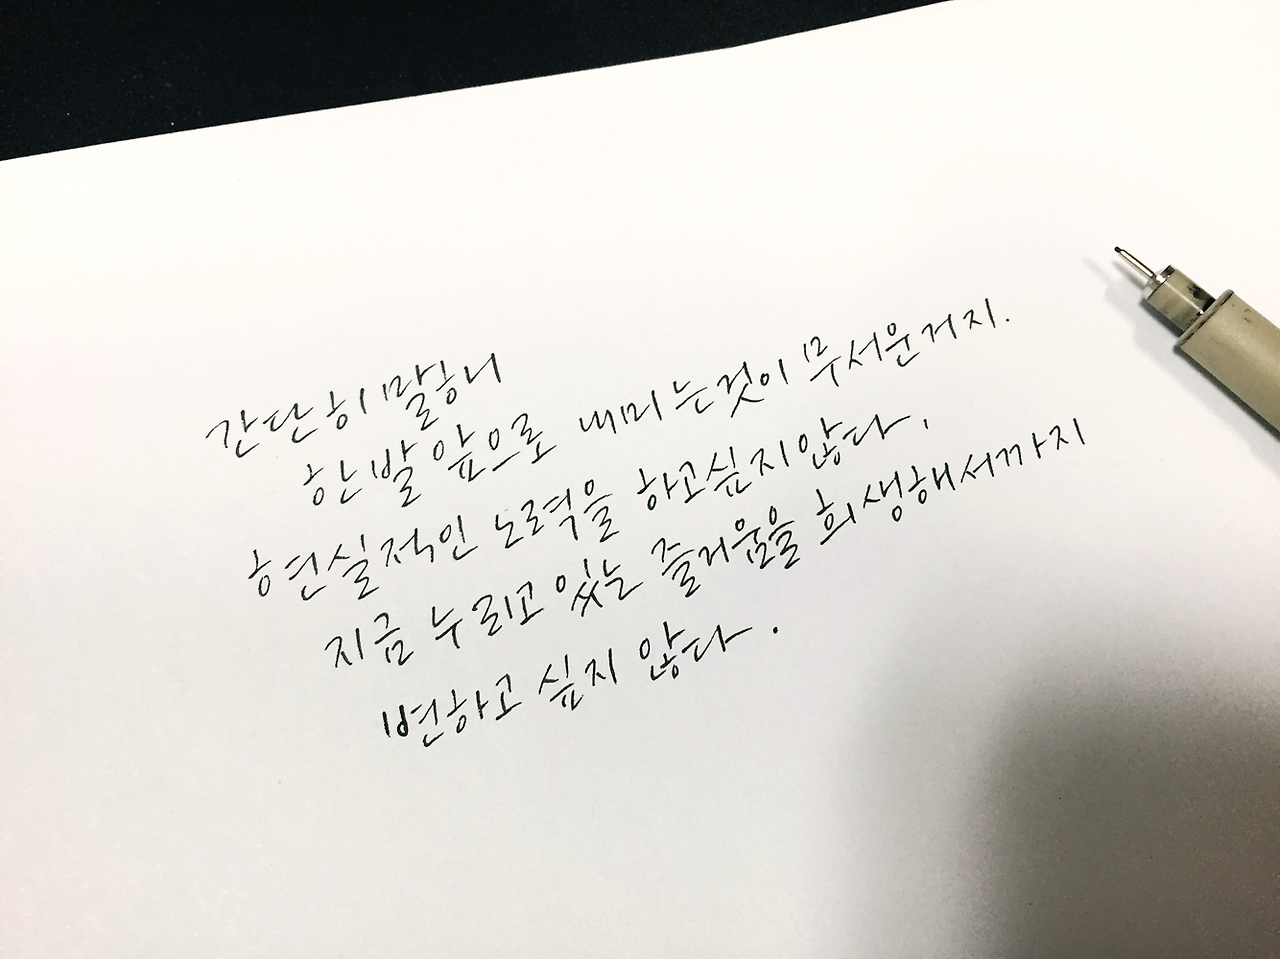 간단히 말하니
한발 앞으로 내미는것이 무서운거지.
현실적인 노력을 하고싶지않다.
지금 누리고 있는 즐거움을 희생해서까지
변하고 싶지 않다.